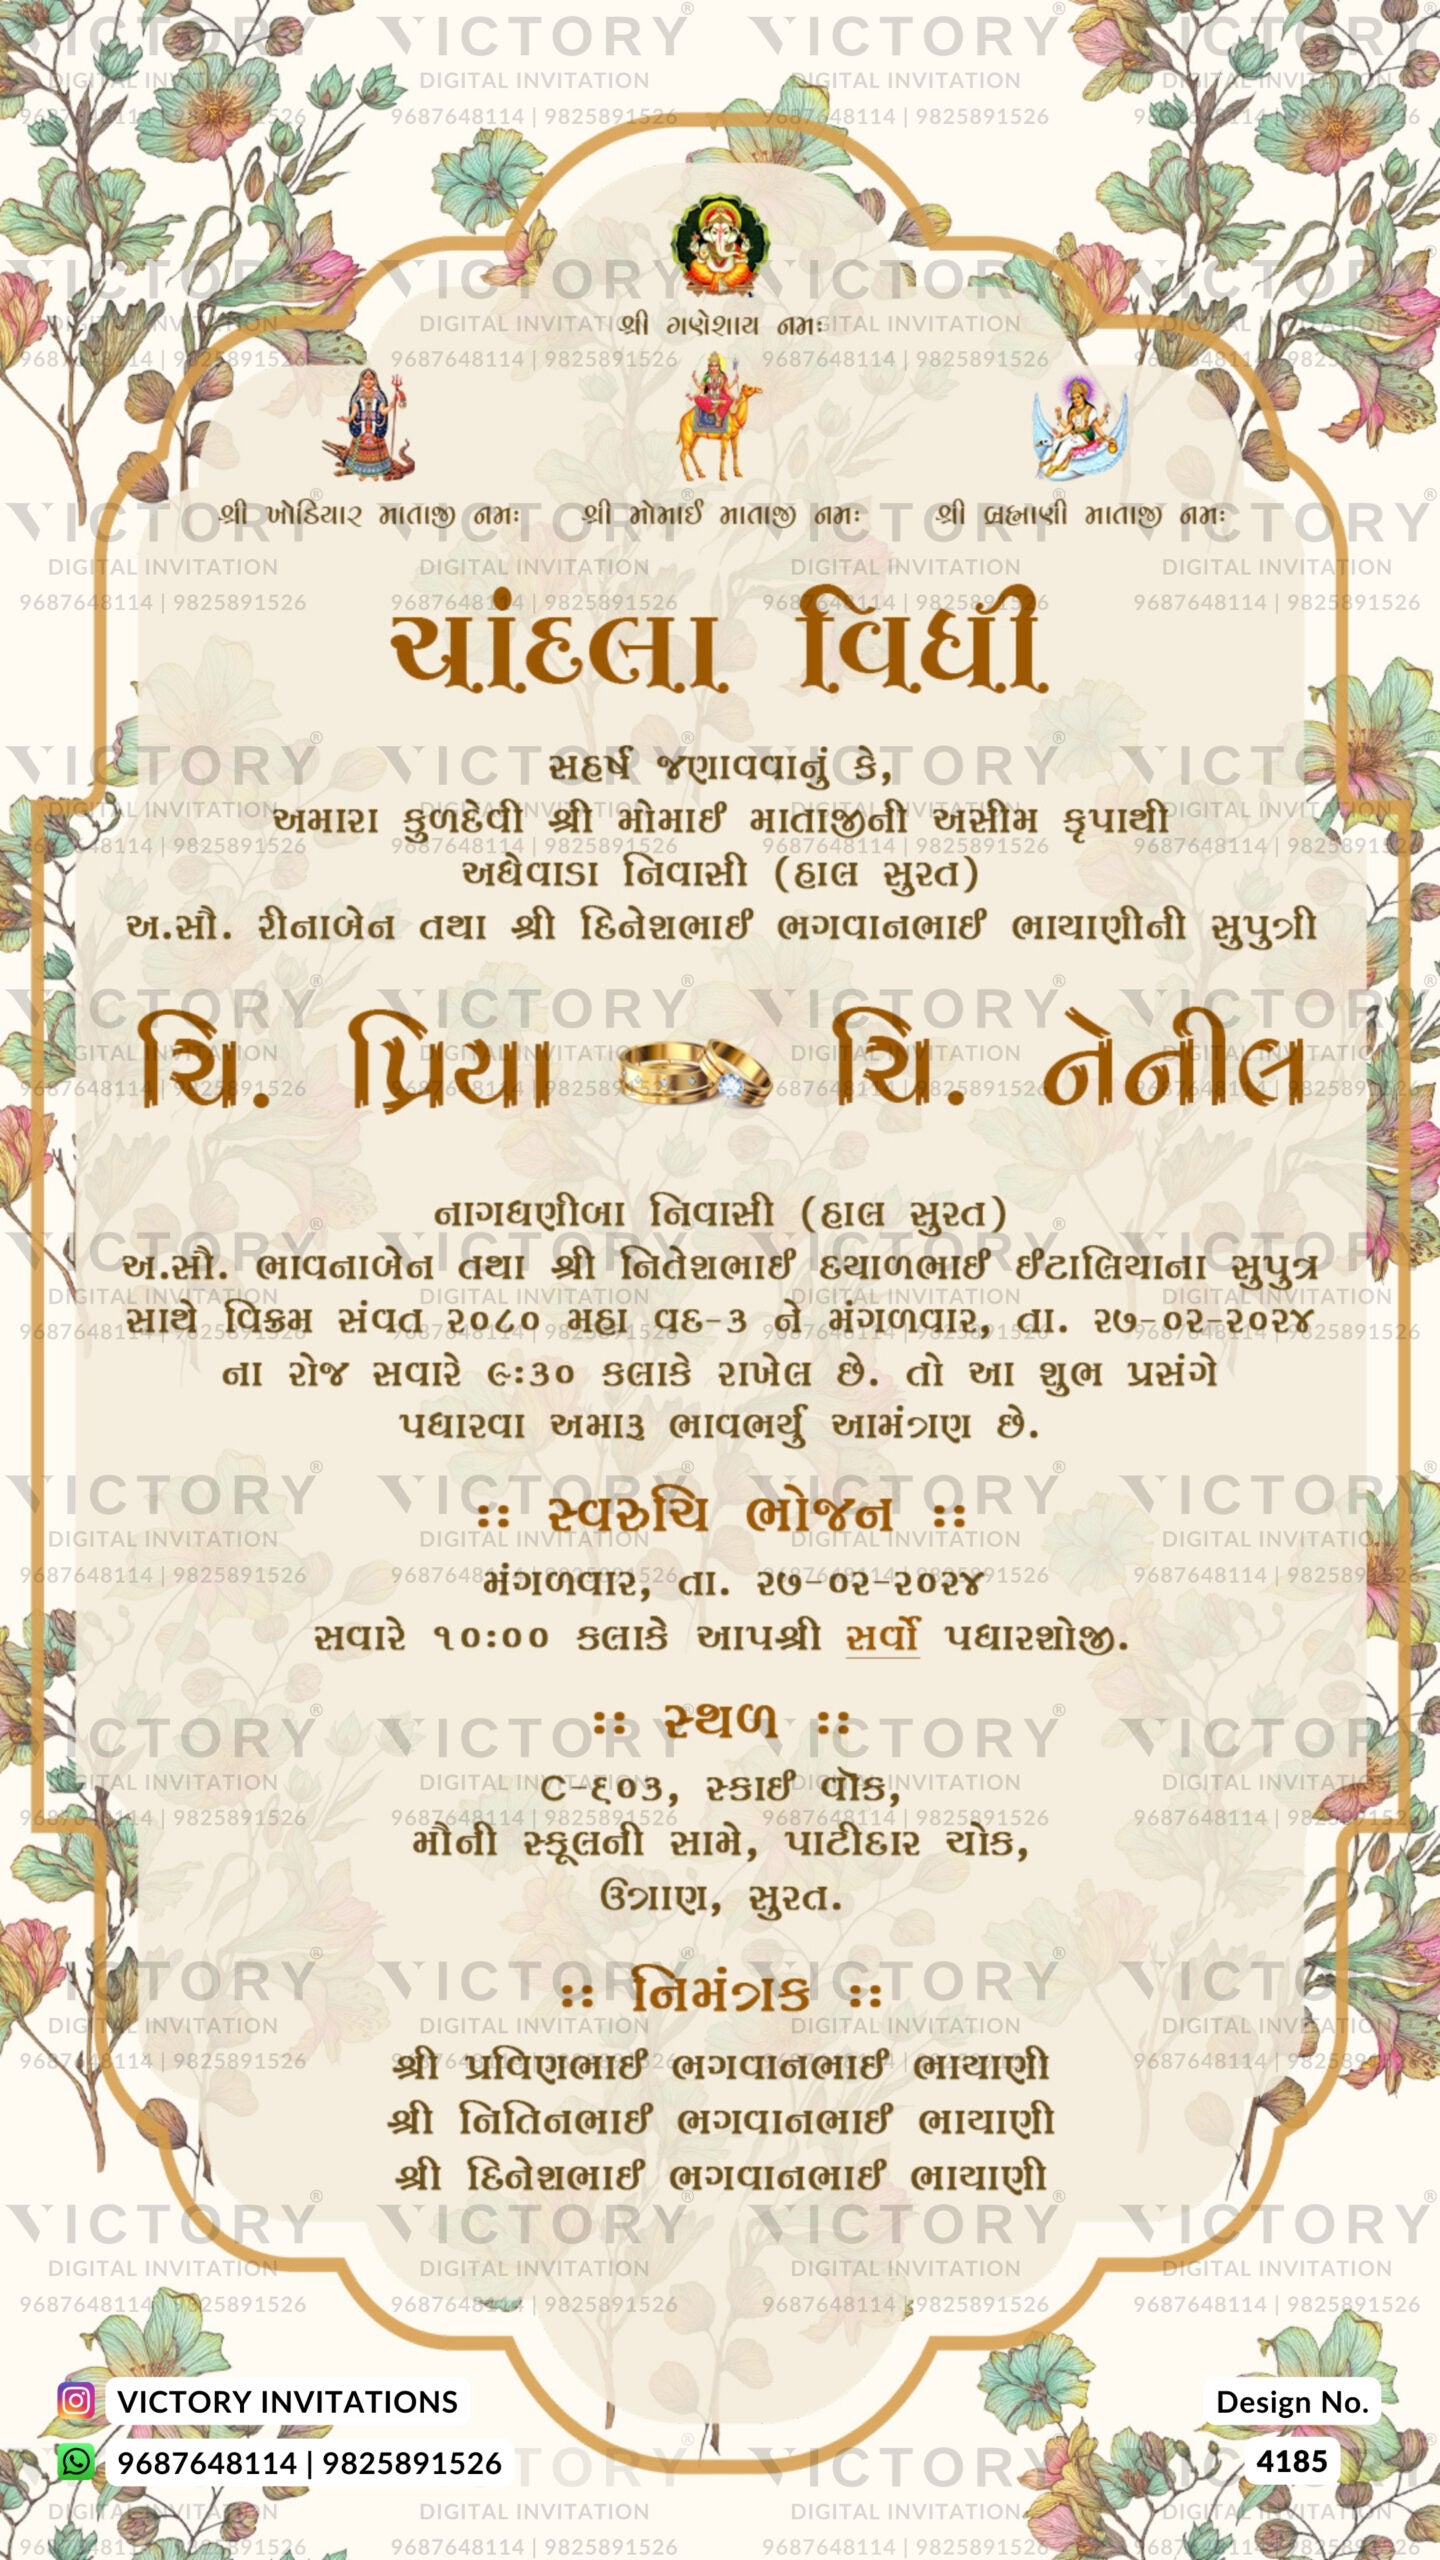 શ્રી ગણેશાય નમઃ
શ્રી ખોડિયાર માતાજી નમઃ શ્રી મોમાઈ માતાજી નમઃ શ્રી બ્રહ્માણી માતાજી નમઃ
ચાંદલા વિધી
સહર્ષ જણાવવાનું કે,
અમારા કુળદેવી શ્રી મોમાઈ માતાજીની અસીમ કૃપાથી
અધેવાડા નિવાસી (હાલ સુરત)
અ.સૌ. રીનાબેન તથા શ્રી દિનેશભાઈ ભગવાનભાઈ ભાયાણીની સુપુત્રી
ચિ. પ્રિયા ચિ. નેનીલ
નાગધણીબા નિવાસી (હાલ સુરત)
અ.સૌ. ભાવનાબેન તથા શ્રી નિતેશભાઈ દયાળભાઈ ઈટાલિયાના સુપુત્ર
સાથે વિક્રમ સંવત ૨૦૮૦ મહા વદ-૩ ને મંગળવાર, તા. ૨૭-૦૨-૨૦૨૪
ના રોજ સવારે ૯:૩૦ કલાકે રાખેલ છે. તો આ શુભ પ્રસંગે
પધારવા અમારૂ ભાવભર્યુ આમંત્રણ છે.
:: સ્વરુચિ ભોજન ::
મંગળવાર, તા. ૨૭-૦૨-૨૦૨૪
સવારે ૧૦:૦૦ કલાકે આપશ્રી સર્વો પધારશોજી.
:: સ્થળ ::
C-૬૦૩, સ્કાઈ વૉક,
મૌની સ્કૂલની સામે, પાટીદાર ચોક,
ઉત્રાણ, સુરત.
:: નિમંત્રક ::
શ્રી પ્રવિણભાઈ ભગવાનભાઈ ભાયાણી
શ્રી નિતિનભાઈ ભગવાનભાઈ ભાયાણી
શ્રી દિનેશભાઈ ભગવાનભાઈ ભાયાણી
VICTORY INVITATIONS
9687648114 | 9825891526
Design No.
4185
VICTORY®
DIGITAL INVITATION
9687648114 | 9825891526